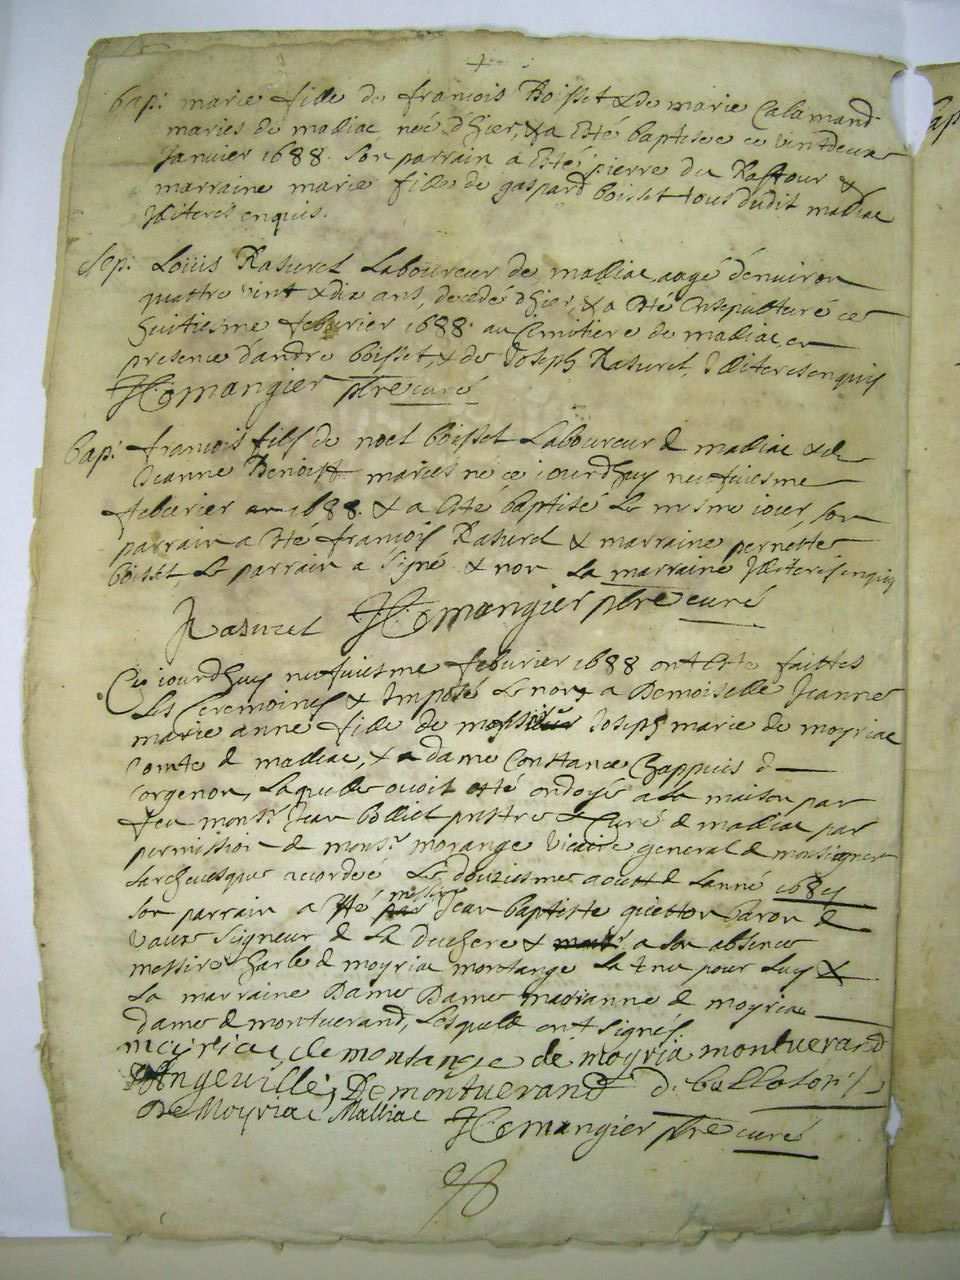 +
bap: marie fille de francois Boisset & de marie Calamand
maries de malliac neé d'hier, & a esté baptisée ce vintdeux
Janvier 1688. son parrain a esté pierre du Rastour &
marraine marie fille de gaspard boisset tous dudit malliac
Illiteres enquis.
Sep: Loüis Rasurel Laboureur de malliac aagé d'enuiron
quattre vint & dix ans, decedé d'hier, & a esté ensepulturé ce
huitiesme feburier 1688. au Cimitiere de malliac, en
presence d'andre boisset, & de Joseph Rasurel, Illiteres enquis
mangier pbre curé
bap: francois fils de noel boisset Laboureur de malliac & de
Jeanne Benoist maries né ce iourdhuy neufuiesme
feburier 1688. & a esté baptisé le mesme iour, son
parrain a esté francois Rasurel & marraine pernette
boisset, Le parrain a signé & non La marraine Illiteres enquis
Rasurel mangier pbre curé
Ce iourdhuy neufuiesme feburier 1688 ont esté faittes
Les Ceremoines & Imposé Le nom a Demoiselle Jeanne
marie anne fille de messire Joseph marie de moyriac
comte de malliac, & a dame Constance Chappuis de
corgenon, Laquelle avoit esté ondoyé a la maison par
feu monsr. Jean bolliet prestre & Curé de malliac par
permission de monsr. morange vicaire general de monsigneur
Larchevesque accordeé Le douziesme aoust de Lanné
son parrain a esté messire Jean baptiste quetton baron de
vaux signeur de La duchere & a son absence
messire Charle de moyriac montange La tnu pour Luy &
La marraine Dame Dame marianne de moyriac
dame de montuerand, Lesquels ont signés.
moyriac de montange de moyria montuerand
Angeuille Demontuerand
De Moyriac Malliac mangier pbre curé